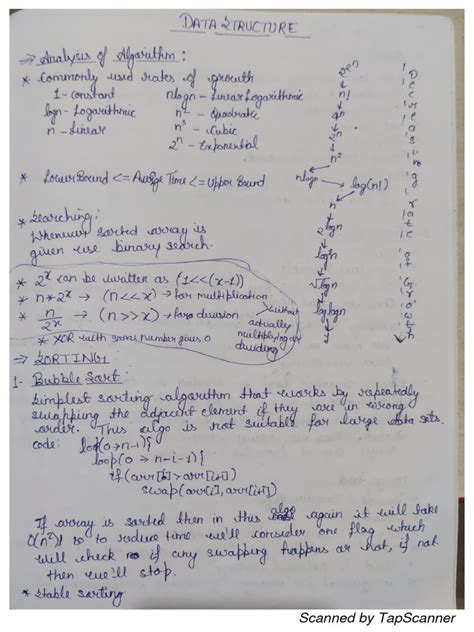 DATA STRUCTURE
⇒ Analysis of Algorithm :
* Commonly used rates of growth
1 - constant
nlogn - Linear Logarithmic
logn - Logarithmic
n² - Quadratic
n - Linear
n³ - Cubic
2ⁿ - Exponential
* Lower Bound <= Average Time <= Upper Bound
n!
n²
nlogn
log(n!)
n
logn
√logn
loglogn
1
Decreasing rate of Growth
* Searching:
Whenever sorted array is
given use binary search.
* 2ˣ can be written as (1<<(x-1))
* n*2ˣ → (n<<x) → for multiplication
* n/2ˣ → (n>>x) → for division
without
actually
multiplying or
dividing
* XOR with same number gives 0
⇒ SORTING
1- Bubble Sort :
Simplest sorting algorithm that works by repeatedly
swapping the adjacent element if they are in wrong
order. This algo is not suitable for large data sets.
code: loop(0→n-1){
loop(0→n-i-1){
if(arr[i]>arr[i+1])
swap(arr[i],arr[i+1])
If array is sorted then in this algo again it will take
O(n²) so to reduce time we'll consider one flag which
will check if any swapping happens or not, if not
then we'll stop.
* Stable sorting
Scanned by TapScanner